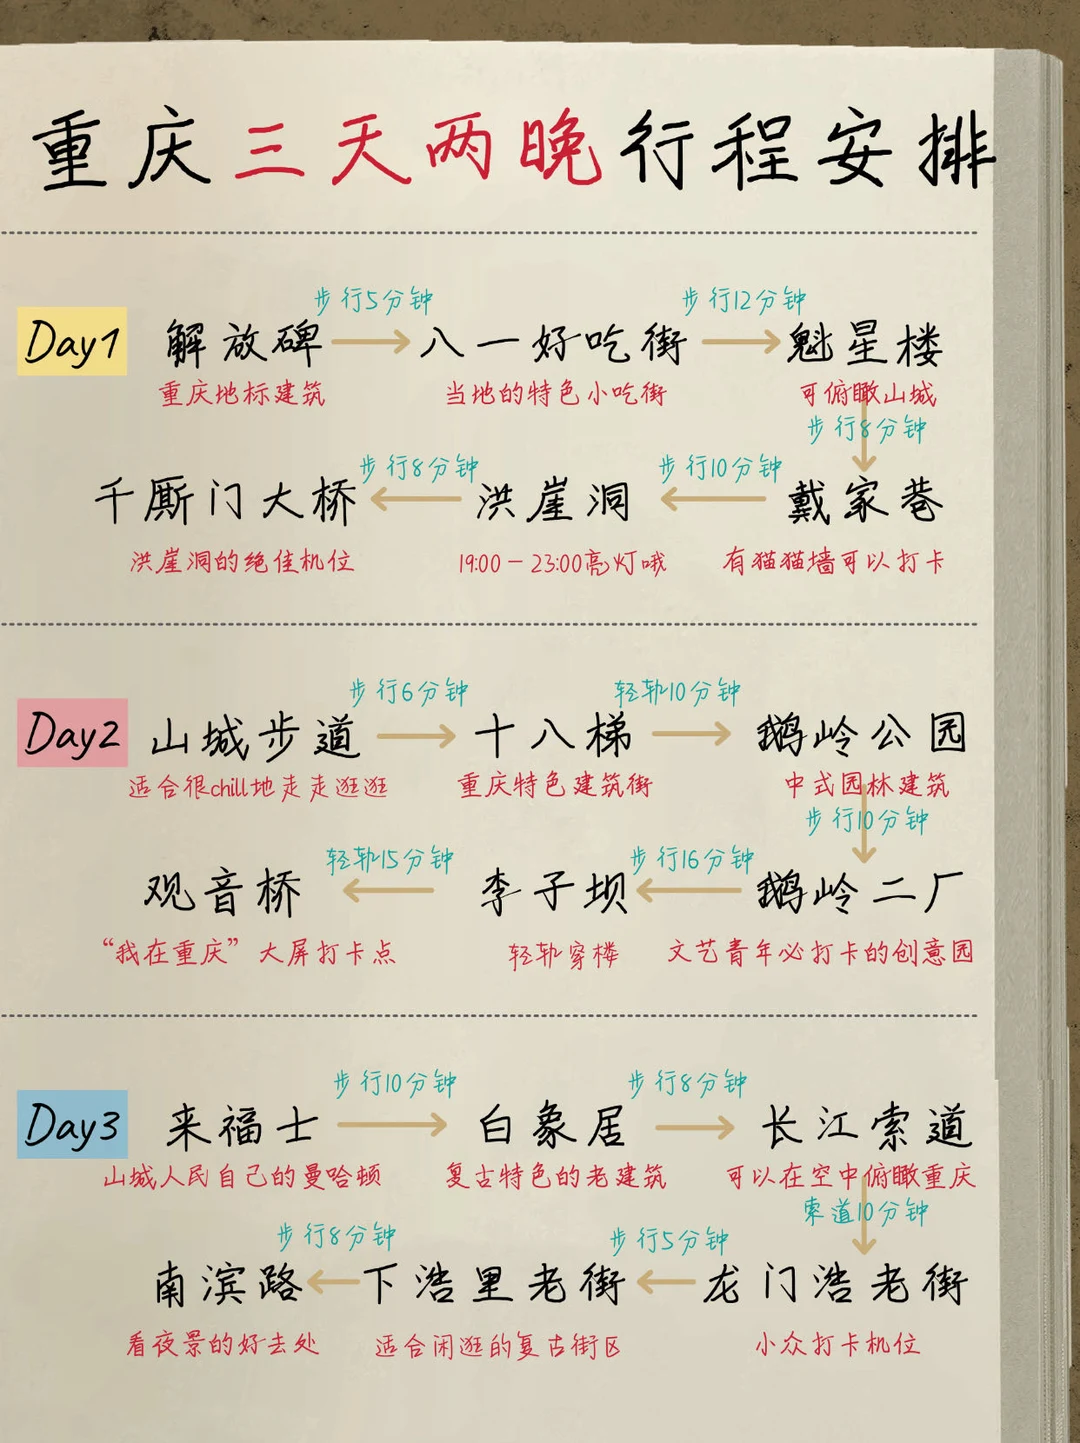 重庆三天两晚行程安排
步行5分钟 步行12分钟
Day1 解放碑 八一好吃街 魁星楼
重庆地标建筑 当地的特色小吃街 可俯瞰山城
步行8分钟
步行8分钟 步行10分钟
千厮门大桥 洪崖洞 戴家巷
洪崖洞的绝佳机位 19:00-23:00亮灯哦 有猫猫墙可以打卡
步行6分钟 轻轨10分钟
Day2 山城步道 十八梯 鹅岭公园
适合很chill地走走逛逛 重庆特色建筑街 中式园林建筑
步行10分钟
轻轨15分钟 步行16分钟
观音桥 李子坝 鹅岭二厂
“我在重庆”大屏打卡点 轻轨穿楼 文艺青年必打卡的创意园
步行10分钟 步行8分钟
Day3 来福士 白象居 长江索道
山城人民自己的曼哈顿 复古特色的老建筑 可以在空中俯瞰重庆
索道10分钟
步行8分钟 步行5分钟
南滨路 下浩里老街 龙门浩老街
看夜景的好去处 适合闲逛的复古街区 小众打卡机位